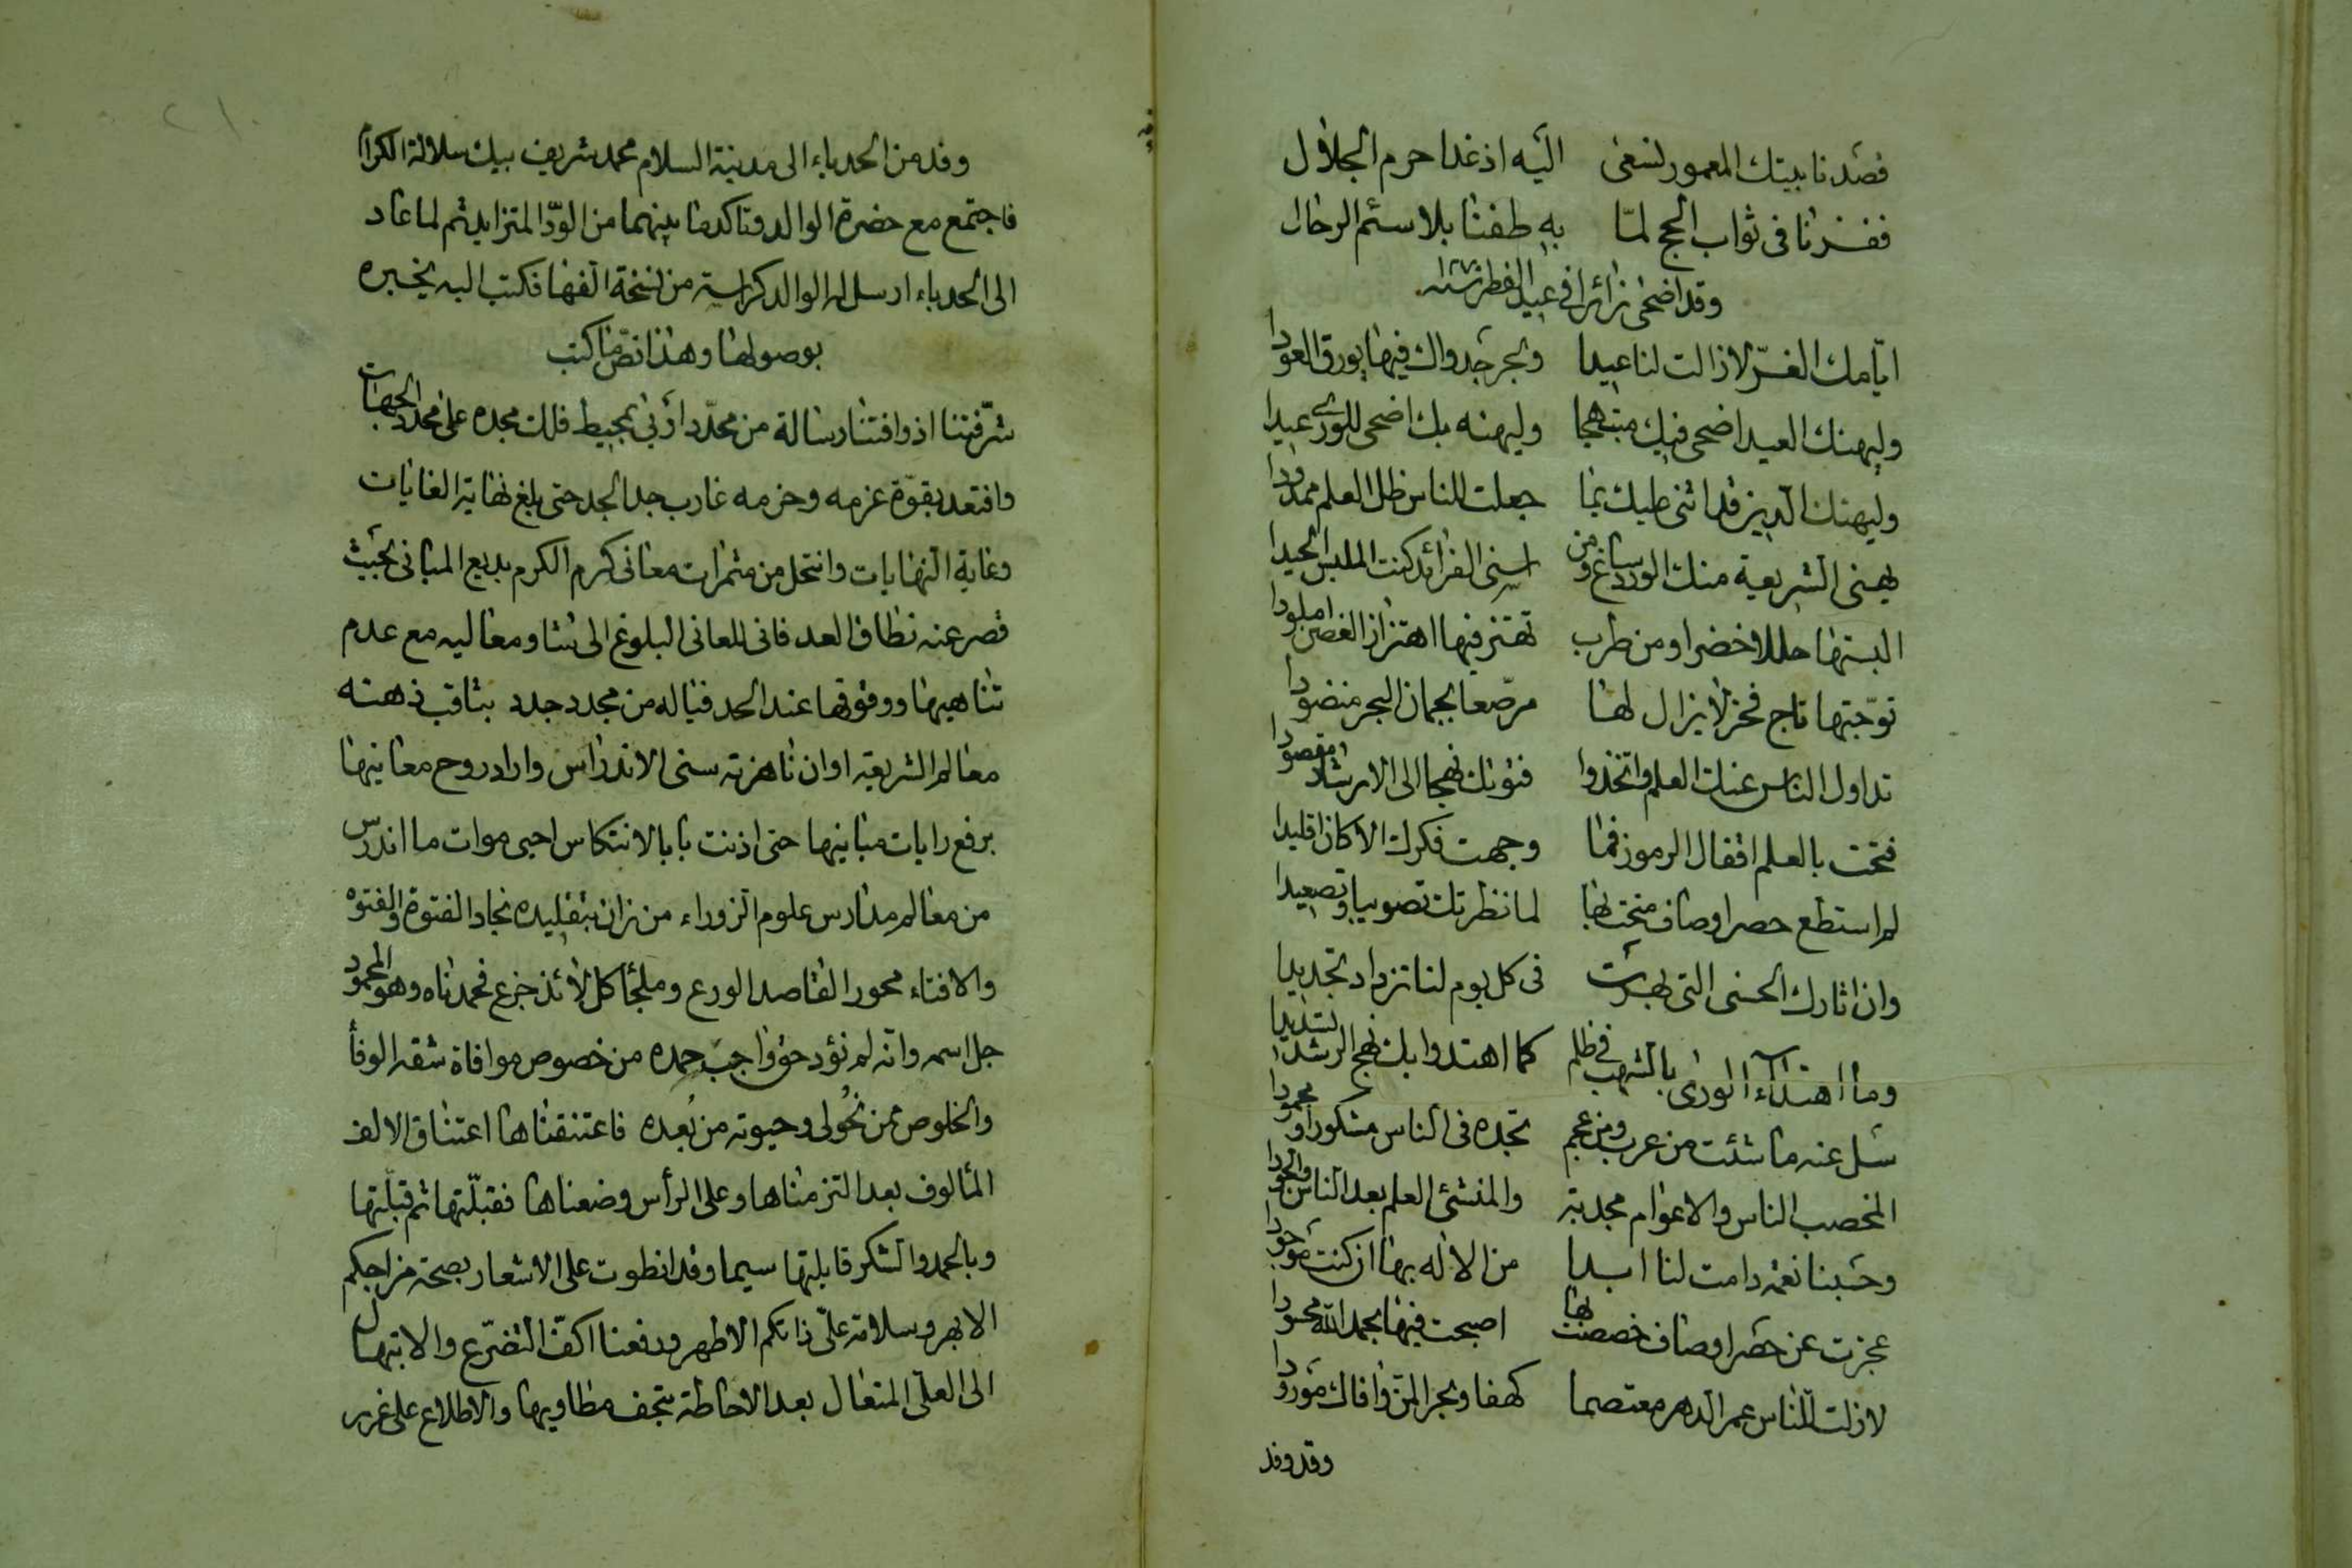 قصدنا بيتك المعمور لنسعى اليه اذ غدا حرم الجلال
ففزنا فى ثواب الحج لمّا به طفنا بلا سئم الرحال
وقد اضحى زائرا فى عيد الفطر سنة
ايّامك الغرّ لا زالت لنا عيدا وبحر جدواك فيها يورق العودا
وليهنك العيد اضحى فيك مبتهجا وليهنه بك اضحى للورى عيدا
وليهنك الدين قد اثنى عليك بما جعلت للناس ظل العلم ممدودا
يهنى الشريعة منك الورد ساغ ومن اسنى الفرائد كنت الملبس الجيدا
البستها حللا خضرا ومن طرب تهتز فيها اهتزاز الغصن املودا
توّجتها تاج فخر لا يزال لها مرصّعا بجمان البحر منضودا
تداول الناس عنك العلم واتخذوا فنونك نهجا الى الارشاد مقصودا
فتحت بالعلم اقفال الرموز فما وجهت فكرك الا كان اقليدا
لم استطع حصر اوصاف منحت بها لما نظرتك تصويبا وتصعيدا
وان اثارك الحسنى التى بهرت فى كل يوم لنا تزداد تجديدا
وما اهتداء الورى بالشهب فى ظلم كما اهتدوا بك نهج الرشد تسديدا
سل عنه ما شئت من عرب ومن عجم تجده فى الناس مشكورا ومحمودا
المخصب الناس والاعوام مجدبة والمنشئ العلم بعد الناس والجودا
وحسبنا نعمة دامت لنا ابدا من الاله بها ان كنت موجودا
عجزت عن حصر اوصاف خصصت بها اصبحت فيها بحمد الله محسودا
لا زلت للناس عمر الدهر معتصما كهفا وبحر المنّ وافاك مورودا
وقد وفد
وفد من الحدباء الى مدينة السلام محمد شريف بيك سلالة الكرام
فاجتمع مع حضرة الوالد وتاكد ما بينهما من الودّ المتزايد ثم لما عاد
الى الحدباء ارسل له الوالد كراسة من نسخة الفها فكتب اليه يخبره
بوصولها وهذا نصّ ما كتب
شرّفتنا اذ وافتنا رسالة من محدّد ادنى بمحيط فلك مجده على محدد الجهات
واقتعد بقوّة عزمه وحزمه غارب جد الجد حتى بلغ نهاية الغايات
وغاية النهايات وانتحل من مثمرات معانى كرم الكرم بديع المبانى بحيث
قصر عنه نطاق العد فانى للعانى البلوغ الى شاو معاليه مع عدم
تناهيها ووقوفها عند الحد فياله من مجدد جدد بثاقب ذهنه
معالم الشريعة اوان ناهزته سنى الاندراس واراد روح معانيها
برفع رايات مبانيها حتى اذنت بابا الانتكاس احيى موات ما اندرس
من معالم مدارس علوم الزوراء من زان بتقليده نجاد الفتوة والفتوه
والافتاء محور القاصد الورع وملجأ كل لائذ جزع فحمدناه وهو المحمود
جل اسمه وانه لم نؤد حق واجب حمده من خصوص موافاة شقه الوفأ
والخلوص ممن نحُولى وحيوته من بُعده فاعتنقناها اعتناق الالف
المألوف بعد التزمناها وعلى الرأس وضعناها فقبلّتها ثم قبلّتها
وبالحمد والشكر قابلتها سيما وقد انطوت على الاشعار بصحة مزاجكم
الابهر وسلامة علىّ ذاتكم الاطهر ورفعنا اكفّ التضرّع والابتهال
الى العلىّ المتعال بعد الاحاطة بتحف مطاويها والاطلاع على غرر